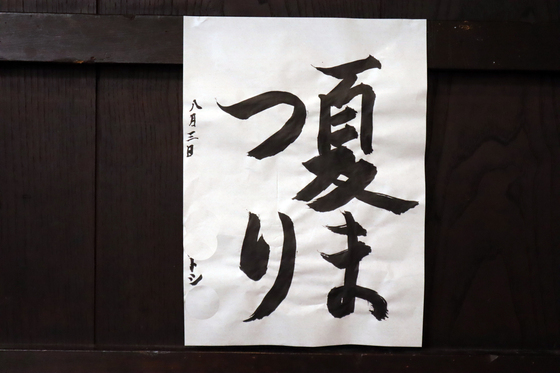 夏ま
つり
八月三日
トシ